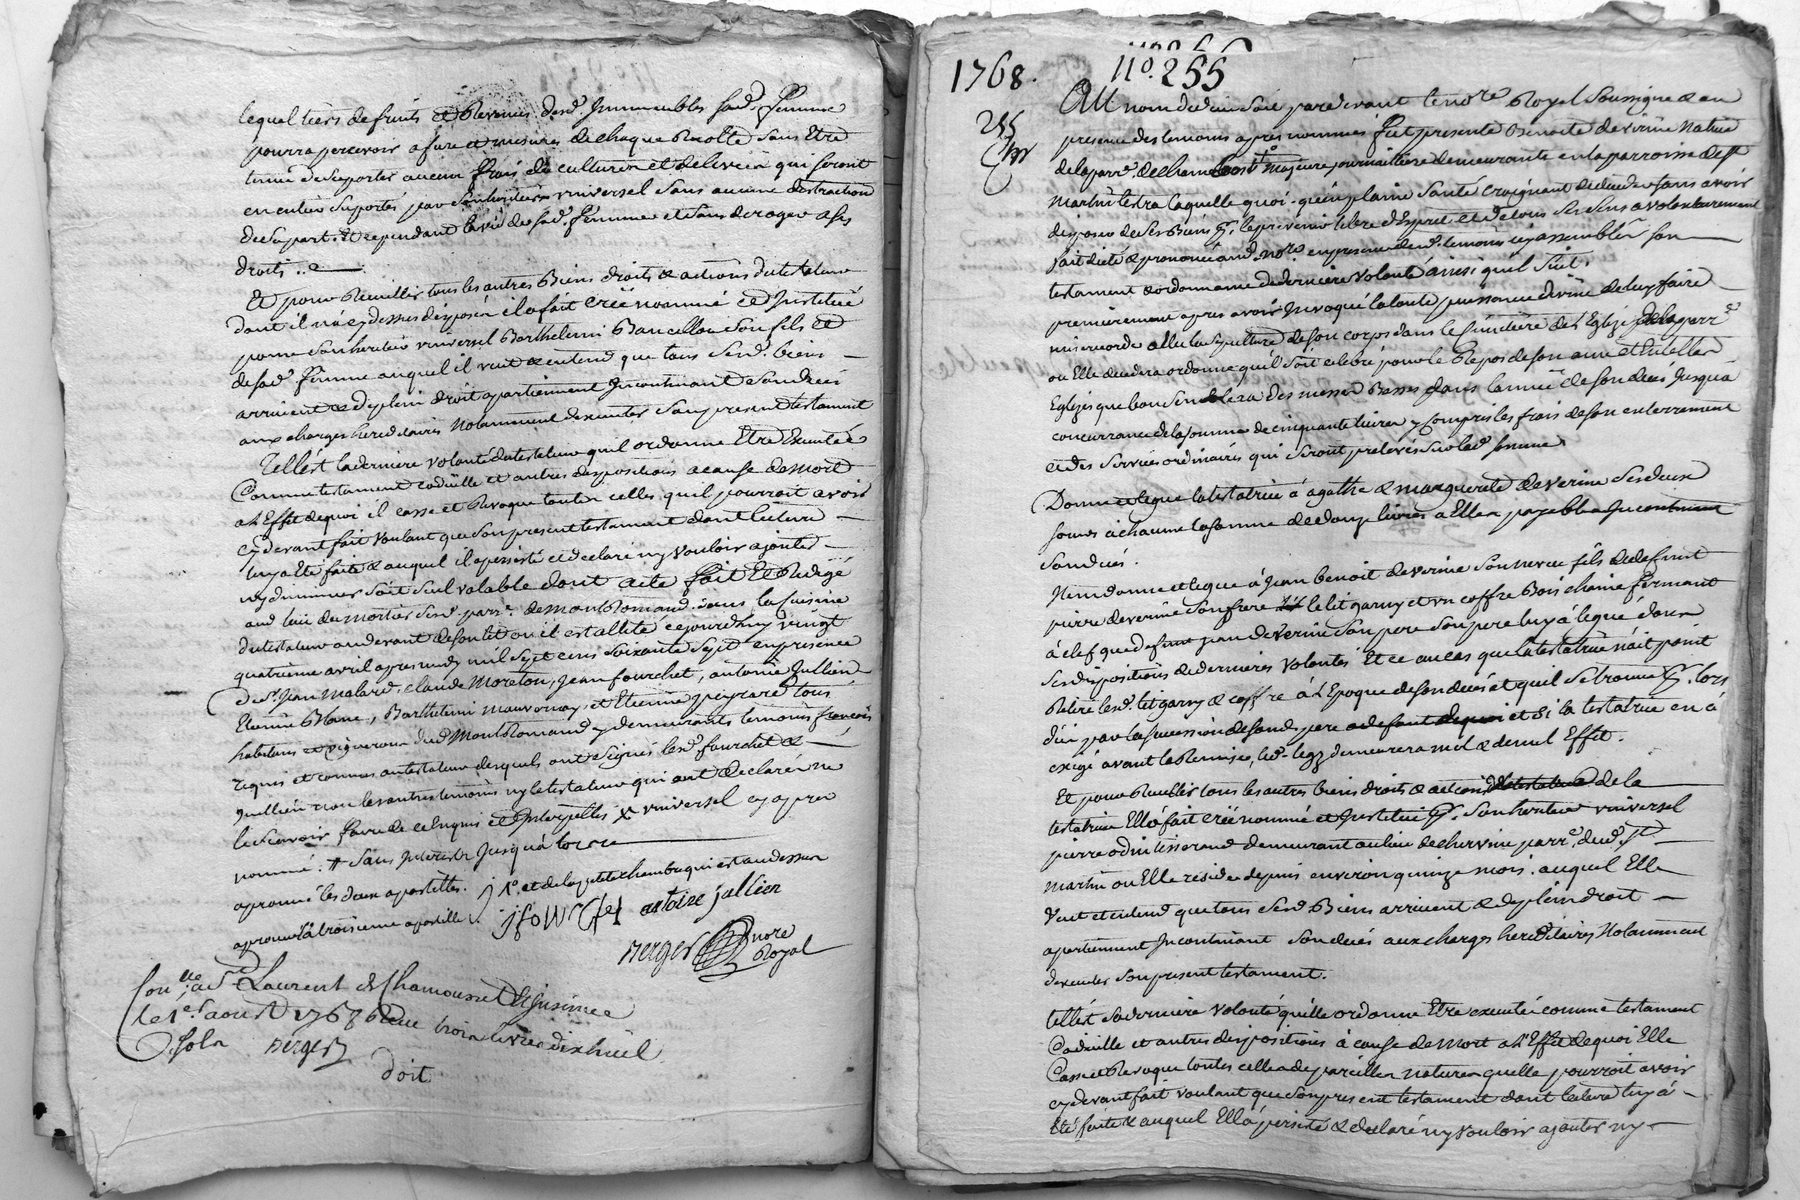 lequel tiers de fruits et Revenus desd. Immeubles sad. femme
pourra percevoir a fure et mesures de chaque Recolte sans Etre
tenue de suporter aucun frais de culture et de livrée qui seront
en entier suportés par son heritier universel sans aucune distraction
de sa part Et cependant la vie de sad. femme et sans deroger a ses
droits ..
Et pour Recuillir tous les autres Biens droits & actions du testateur
dont il n'a cy dessus disposé il a fait créé nommé et Institué
pour son heritier universel Barthelemi Bancillon son fils et
de sad. femme auquel il veut & entend que tous sesd. biens
arrivent & de plein droit apartiennent Incontinant son decés
aux charges hereditaires Notamment d'executer son present testament
Telle est la derniere volonté du testateur qu'il ordonne Etre Executée
Comme testament codicille et autres dispositions a cause de Mort
a l'Effet de quoi il casse et Revoque toutes celles qu'il pourroit avoir
cy devant fait voulant que son present testament dont lecture
luy a Eté faite & auquel il a persisté et declaré n'y vouloir ajouter
ny diminuer soit seul valable dont acte fait Et Redigé
aud lieu du mortier susd. parr. de Montromand dans la Cuisine
du testateur au devant de son lit ou il est allité cejourdhuy vingt
quatrieme avril apres midy mil sept cens soixante sept en presence
de Sr. Jean Malard, claude Moreton, Jean fourchet, antoine Jullien
Etienne Blanc, Barthelemi Mauvernay, et Etienne peyrard tous
habitans et vignerons dud Montromand y demeurants temoins
requis et connus au testateur desquels ont signés lesd. fourchet &
Jullien non les autres temoins ny le testateur qui ont declaré ne
le scavoir faire de ce Enquis et Interpellés X universel cy apres
nommé. # sans Interests Jusqu'a lors
aprouvé les deux apostilles. 1°. et de la petite chambre qui est au dessus
aprouvé la troisieme apostille
j fourchet antoine jullien
Berger nore Royal
Con.lle a St Laurent de Chamousset
le 1er. aout 1768 Reçu trois livres dix huit
sols Berger
doit
1768. No. 255
255
AU nom de dieu soit pardevant le nore Royal soussigné & en
presence des temoins apres nommés fut presente Benoite deverine Native
de la parr. de majeure journaliere demeurante en la parroisse de St
Martin lestra laquelle quoi-qu'en plaine santé craignant de deceder sans avoir
disposé de ses Biens libre d'Esprit et de tous ses sens a volontairement
fait dicté & prononcé aud. nore. en presence desd. temoins icy assemblés son
testament & ordonnance de derniere volonté ainsi qu'il suit.
premierement apres avoir Invoqué la toute puissance divine de luy faire
misericorde a Elu la sepulture de son corps dans le Cimetiere de l'Eglise de la parr.e
ou Elle decedera ordonne qu'il soit celebré pour le Repos de son ame Et en telles
Eglises que bon semblera Des messes Basses dans l'année de son decés Jusqu'a
concurrance de la somme de cinquante livres y compris les frais de son enterrement
et des services ordinaires qui seront prelevés sur lad. somme
Donne et legue la testatrice á agathe & marguerite deverine ses deux
sœurs á chacune la somme de douze livres a Elles payable Incontinant
son decés.
Item donne et legue á Jean benoit deverine son neveu fils de defunt
pierre deverine son frere le lit garny et un coffre Bois chaine fermant
á clef que defunt jean deverine son pere luy á legué dans
ses dispositions de dernieres volontés Et ce au cas que la testatrice n'ait point
Retiré lesd. lit garny & coffre á l'Epoque de son decés et qu'il se trouve lors
dû par la succession de sond. pere et si la testatrice en á
exigé avant la Remise, led. legs demeurera nul & de nul Effet.
Et pour Recuillir tous les autres biens droits & actions de la
testatrice Elle á fait créé nommé et Institué son heritier universel
pierre odin tisserand demeurant au lieu de chervin parr.e dud. St.
martin ou Elle reside depuis environ quinze mois. auquel Elle
Veut et entend que tous sesd. Biens arrivent & de plein droit
apartiennent Incontinant son decés aux charges hereditaires Notamment
d'executer son present testament.
telle est sa derniere volonté qu'elle ordonne Etre executé comme testament
Codicille et autres dispositions á cause de Mort a l'Effet de quoi Elle
Casse et Revoque toutes celles de pareilles natures qu'elle pourroit avoir
cy devant fait voulant que son present testament dont lecture luy á
Eté faite & auquel Elle á persisté & declaré n'y vouloir ajouter ny